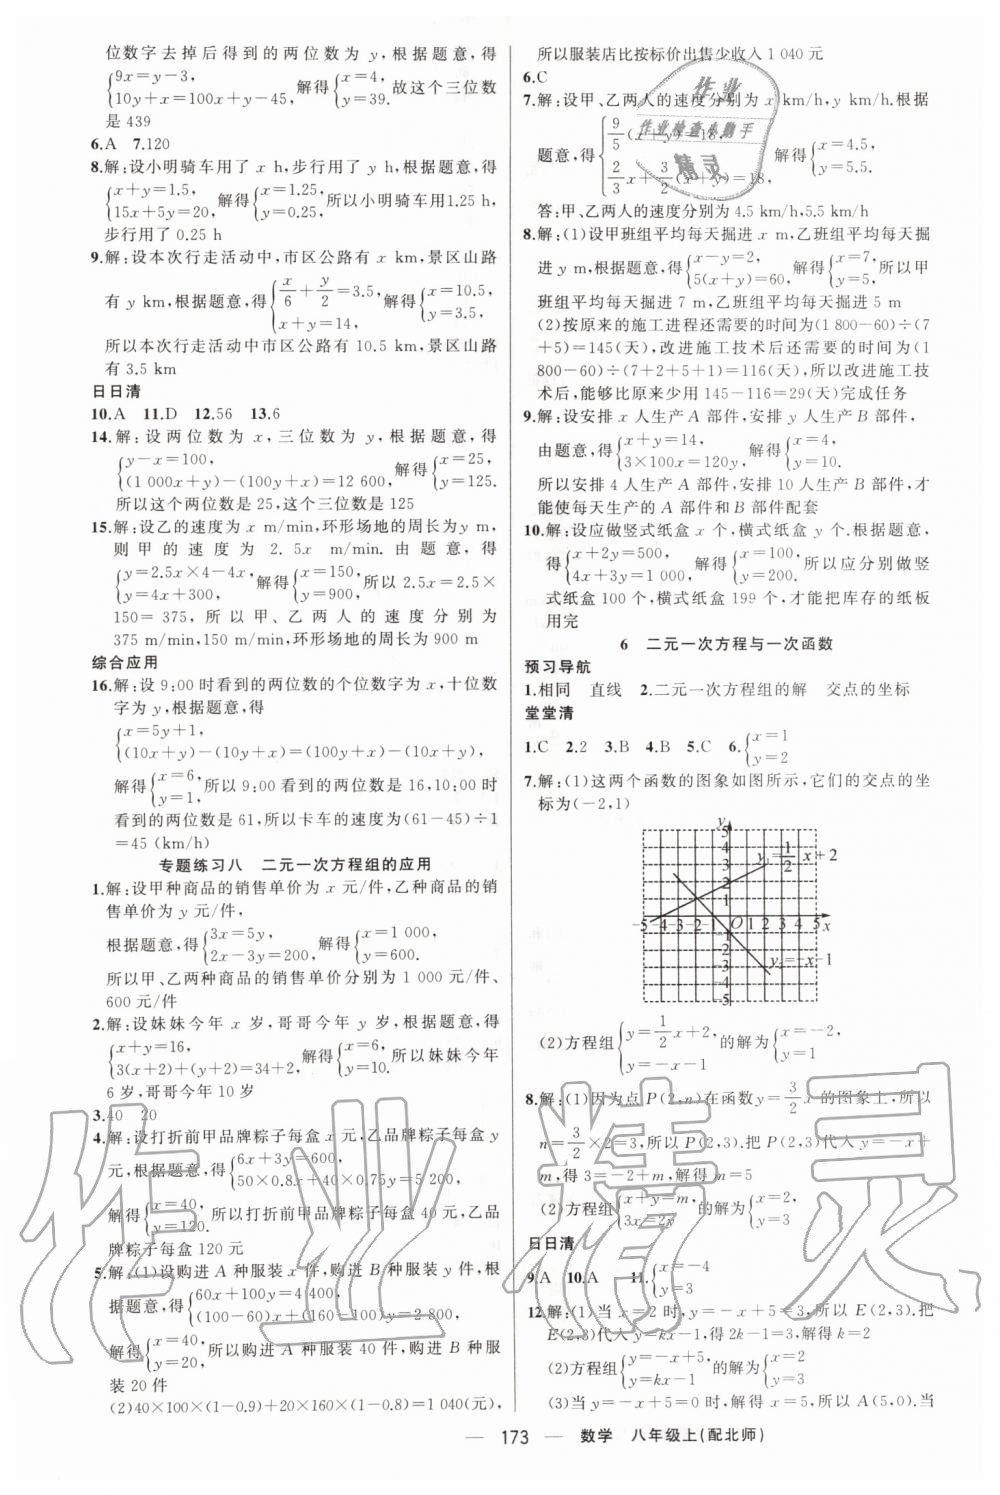 位数字去掉后得到的两位数为 y,根据题意,得
{9x=y-3, 10y+x=100x+y-45, 解得 {x=4, y=39. 故这个三位数
是 439
6.A 7.120
8.解:设小明骑车用了 x h,步行用了 y h,根据题意,得
{x+y=1.5, 15x+5y=20, 解得 {x=1.25, y=0.25, 所以小明骑车用1.25 h,
步行用了 0.25 h
9.解:设本次行走活动中,市区公路有 x km,景区山路
有 y km,根据题意,得 {x/6+y/2=3.5, x+y=14, 解得 {x=10.5, y=3.5,
所以本次行走活动中市区公路有 10.5 km,景区山路
有 3.5 km
日日清
10.A 11.D 12.56 13.6
14.解:设两位数为 x,三位数为 y,根据题意,得
{y-x=100, (1 000x+y)-(100y+x)=12 600, 解得 {x=25, y=125.
所以这个两位数是 25,这个三位数是 125
15.解:设乙的速度为 x m/min,环形场地的周长为y m,
则甲的速度为 2. 5x m/min. 由题意,得
{y=2.5x×4-4x, y=4x+300, 解得 {x=150, y=900, 所以 2.5x=2.5×
150= 375, 所以甲、乙两人的速度分别为
375 m/min,150 m/min,环形场地的周长为 900 m
综合应用
16.解:设 9:00 时看到的两位数的个位数字为 x,十位数
字为 y,根据题意,得
{x=5y+1, (10x+y)-(10y+x)=(100y+x)-(10x+y),
解得 {x=6, y=1, 所以 9:00 看到的两位数是 16,10:00 时
看到的两位数是 61,所以卡车的速度为(61-45)÷1
=45 (km/h)
专题练习八 二元一次方程组的应用
1.解:设甲种商品的销售单价为 x 元/件,乙种商品的销
售单价为 y 元/件,
根据题意,得 {3x=5y, 2x-3y=200, 解得 {x=1 000, y=600.
所以甲、乙两种商品的销售单价分别为 1 000 元/件、
600 元/件
2.解:设妹妹今年 x 岁,哥哥今年 y 岁,根据题意,得
{x+y=16, 3(x+2)+(y+2)=34+2, 解得 {x=6, y=10. 所以妹妹今年
6 岁,哥哥今年 10 岁
3.40 20
4.解:设打折前甲品牌粽子每盒 x 元,乙品牌粽子每盒 y
元,根据题意,得 {6x+3y=600, 50×0.8x+40×0.75y=5 200,
解得 {x=40, y=120. 所以打折前甲品牌粽子每盒 40 元,乙品
牌粽子每盒 120 元
5.解:(1)设购进 A 种服装 x 件,购进 B 种服装 y 件,根
据题意,得 {60x+100y=4 400, (100-60)x+(160-100)y=2 800,
解得 {x=40, y=20, 所以购进 A 种服装 40 件,购进 B 种服
装 20 件
(2)40×100×(1-0.9)+20×160×(1-0.8)=1 040(元),
所以服装店比按标价出售少收入 1 040 元
6.C
7.解:设甲、乙两人的速度分别为 x km/h,y km/h.根据
题意,得 {9/5(x+y)=18, 2/3x+3/2(x+y)=18, 解得 {x=4.5, y=5.5.
答:甲、乙两人的速度分别为 4.5 km/h,5.5 km/h
8.解:(1)设甲班组平均每天掘进 x m,乙班组平均每天掘
进 y m,根据题意,得 {x-y=2, 5(x+y)=60, 解得 {x=7, y=5, 所以甲
班组平均每天掘进 7 m,乙班组平均每天掘进 5 m
(2)按原来的施工进程还需要的时间为(1 800-60)÷(7
+5)=145(天),改进施工技术后还需要的时间为(1
800-60)÷(7+2+5+1)=116(天),所以改进施工技
术后,能够比原来少用 145-116=29(天)完成任务
9.解:设安排 x 人生产 A 部件,安排 y 人生产 B 部件,
由题意,得 {x+y=14, 3×100x=120y, 解得 {x=4, y=10.
所以安排 4 人生产 A 部件,安排 10 人生产 B 部件,才
能使每天生产的 A 部件和 B 部件配套
10.解:设应做竖式纸盒 x 个,横式纸盒 y 个.根据题意,
得 {x+2y=500, 4x+3y=1 000, 解得 {x=100, y=200. 所以应分别做竖
式纸盒 100 个,横式纸盒 199 个,才能把库存的纸板
用完
6 二元一次方程与一次函数
预习导航
1.相同 直线 2.二元一次方程组的解 交点的坐标
堂堂清
1.C 2.2 3.B 4.B 5.C 6.{x=1 y=2
7.解:(1)这两个函数的图象如图所示,它们的交点的坐
标为(-2,1)
y
5
4
3
2
1
y₁=1/2x+2
-5-4-3-2-1 O 1 2 3 4 5 x
-1
-2
-3
-4
-5
y₂=-x-1
(2)方程组 {y=1/2x+2, y=-x-1 的解为 {x=-2, y=1
8.解:(1)因为点 P(2,n)在函数y=3/2x 的图象上,所以
n=3/2×2=3,所以 P(2,3).把 P(2,3)代入 y=-x+
m,得 3=-2+m,解得 m=5
(2)方程组 {x+y=m, 3x=2y 的解为 {x=2, y=3
日日清
9.A 10.A 11.{x=-4 y=3
12.解:(1)当 x=2 时,y=-x+5=3,所以 E(2,3).把
E(2,3)代入 y=kx-1,得 2k-1=3,解得 k=2
(2)方程组 {y=-x+5, y=kx-1 的解为 {x=2 y=3
(3)当 y=-x+5=0 时,解得 x=5,所以 A(5,0).当
作业
作业检查小助手
精灵
作业精灵
173 数学 八年级上(配北师)